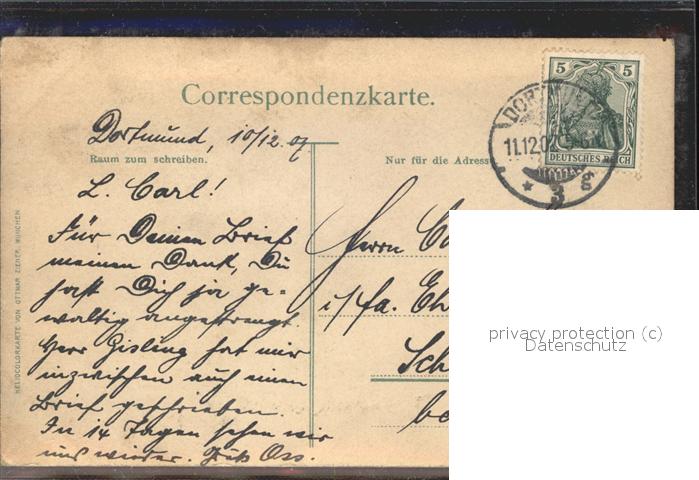 Correspondenzkarte.
Dortmund, 10/12.07
Raum zum schreiben.
Nur für die Adress
L. Carl!
Für Deinen Brief
meinen Dank, Du
hast Dich ja ge-
waltig angestrengt.
Herr Gisling hat mir
inzwischen auch einen
Brief geschrieben.
In 14 Tagen sehen wir
uns wieder.
Herrn
i/fa. Eh
Sch
be
5 5
DEUTSCHES REICH
DORT
11.12.0
* 3
HELIOCOLORKARTE VON OTTMAR ZIEHER, MÜNCHEN
privacy protection (c)
Datenschutz